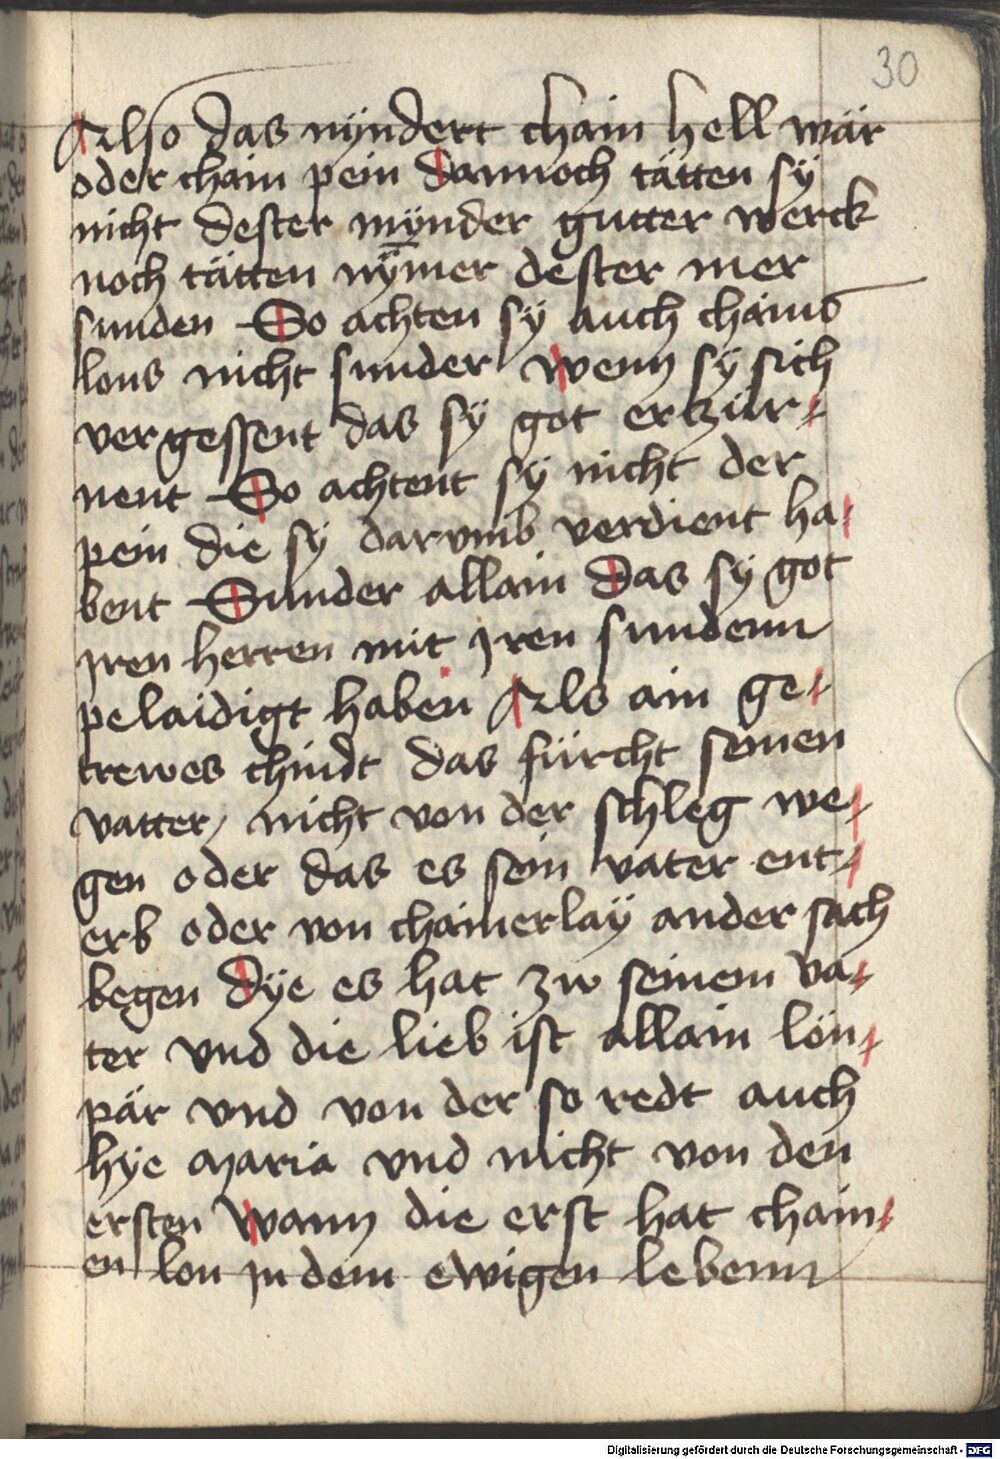 30
Also das nÿndert chain hell wär
oder chain pein Dannoch tätten sÿ
nicht dester mÿnder gutter werck
noch tätten nÿmer dester mer
sunden So achten sÿ auch chains
lons nicht sunder Wenn sÿ sich
vergessent das sÿ got erzür-
nent So achtent sÿ nicht der
pein die sÿ darvmb verdient ha-
bent Sunder allain Das sÿ got
jren herren mit jren sundenn
pelaidigt haben Als ain ge-
trewes chindt das fürcht seinen
vatter, nicht von der schleg we-
gen oder das es sein vater ent-
erb oder von chainerlaÿ ander sach
begen Dÿe es hat zw seinem va-
ter vnd die lieb ist allain lön-
pär vnd von der so redt auch
hÿe Maria vnd nicht von den
ersten Wann die erst hat chain-
en lon jn dem ewigen lebenn
Digitalisierung gefördert durch die Deutsche Forschungsgemeinschaft - DFG